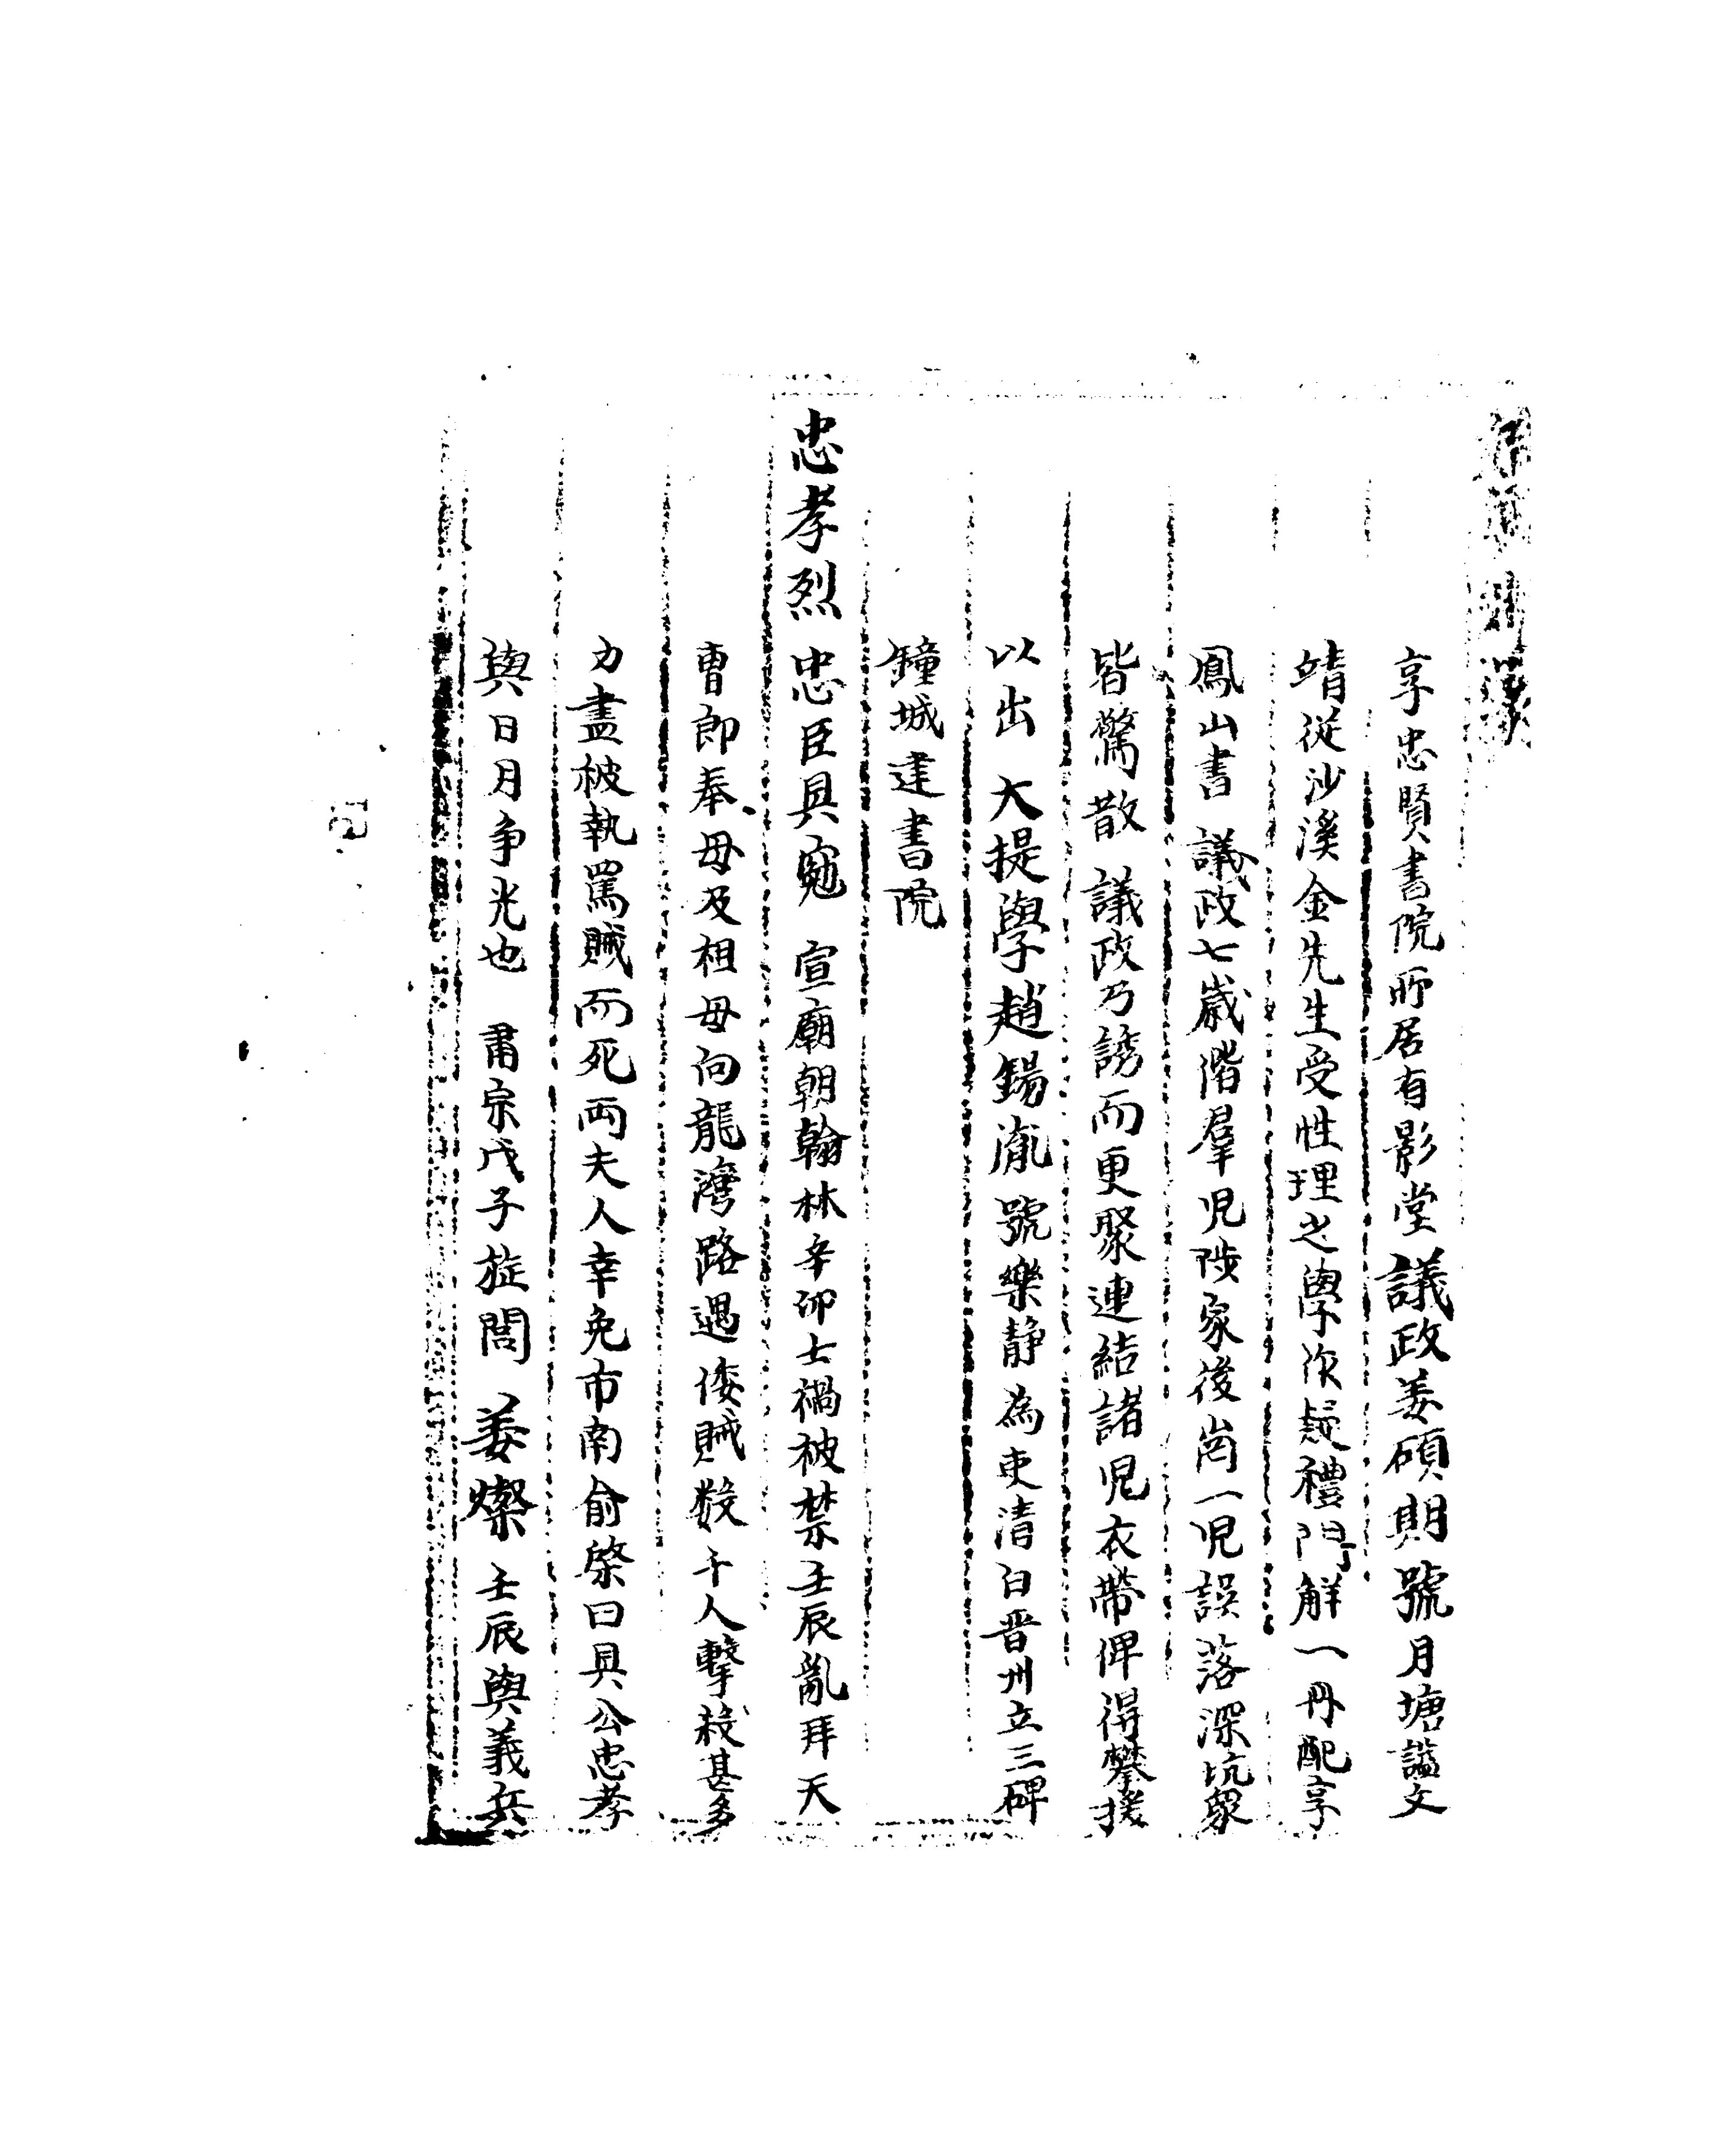 享忠賢書院所居有影堂議政姜碩期號月塘謚文
靖從沙溪金先生受性理之學作疑禮問解一冊配享
鳳山書 議政七歲偕羣児陟家後崗一児誤落深坑衆
皆驚散 議政乃誘而更聚連結諸児衣帶俾得攀援
以出 大提學趙錫胤號樂静為吏清白晋州立三碑
鐘城建書院
忠孝烈 忠臣具㝹 宣廟朝翰林辛卯士禍被禁壬辰亂拜天
曹郎奉母及祖母向龍灣路遇倭賊数千人擊殺甚多
力盡被執罵賊而死両夫人幸免市南俞棨曰具公忠孝
與日月争光也 肅宗戊子旋閭 姜燦 壬辰與義兵